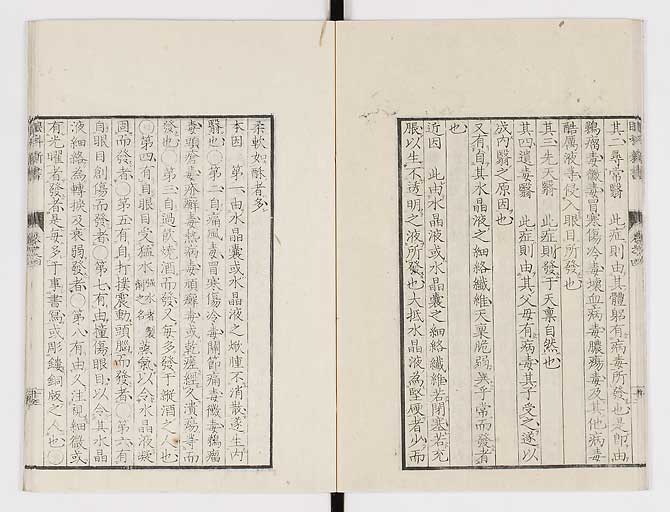 其二尋常翳 此症則由其體躬有病毒所發也是即由
鷄瘤毒黴毒冒寒傷冷毒壞血病毒膿瘍毒及其他病毒
酷厲液毒侵入眼目所發也
其三先天翳 此症則發于天稟自然也
其四遺毒翳 此症則由其父母有病毒其子受之遂以
成內翳之原因也
又有自其水晶液之細絡纖維天稟脆弱無子常而發者
也
近因 此由水晶液或水晶囊之細絡纖維若閉塞若充
脹以生不透明之液所發也大抵水晶液為堅硬者少而
柔軟如酥者多
本因 第一由水晶液或水晶囊之焮腫不消散遂生內
翳也〇第二自痛風毒冒寒傷冷毒關節痛毒黴毒鷄瘤
毒頭瘡毒疥癬毒熱病毒頑癬毒或乾瘥經久潰瘍等而
發也〇第三自過飲燒酒而發又每多發于縱酒之人也
〇第四有自眼目受猛水強水者製銅之名蒸氣以令水晶液凝
固而發者〇第五有自打撲震動頭腦而發者〇第六有
自眼目創傷而發者〇第七有由撞傷眼目以令其水晶
液細絡為轉捩及衰弱發者〇第八有由久注視細微或
有光曜者發者是毎多于事書寫或彫鏤銅版之人也〇
眼科新書